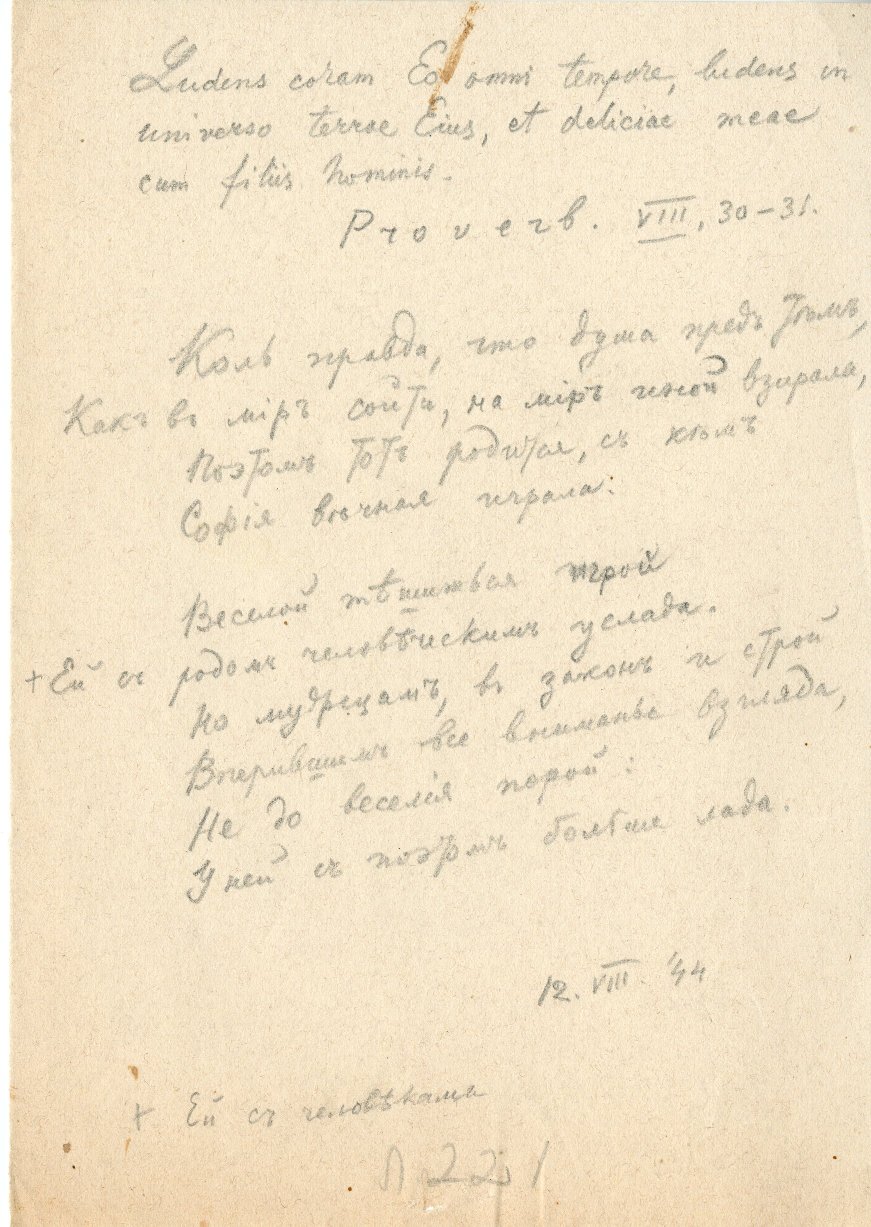 Ludens coram Eo omni tempore, ludens in
universo terrae Eius, et deliciae meae
cum filiis hominis.
Proverb. VIII, 30–31.
Коль правда, что душа предъ тѣмъ,
Какъ въ міръ сойти, на міръ иной взирала,
Поэтомъ тотъ родится, съ кѣмъ
Софія вѣчная играла.
Веселой тѣшиться игрой
+ Ей съ родомъ человѣческимъ услада.
Но мудрецамъ, въ законъ и строй
Вперившимъ все вниманье взгляда,
Не до веселія порой:
У ней съ поэтомъ больше лада.
12. VIII. '44
+ Ей съ человѣками
л 221